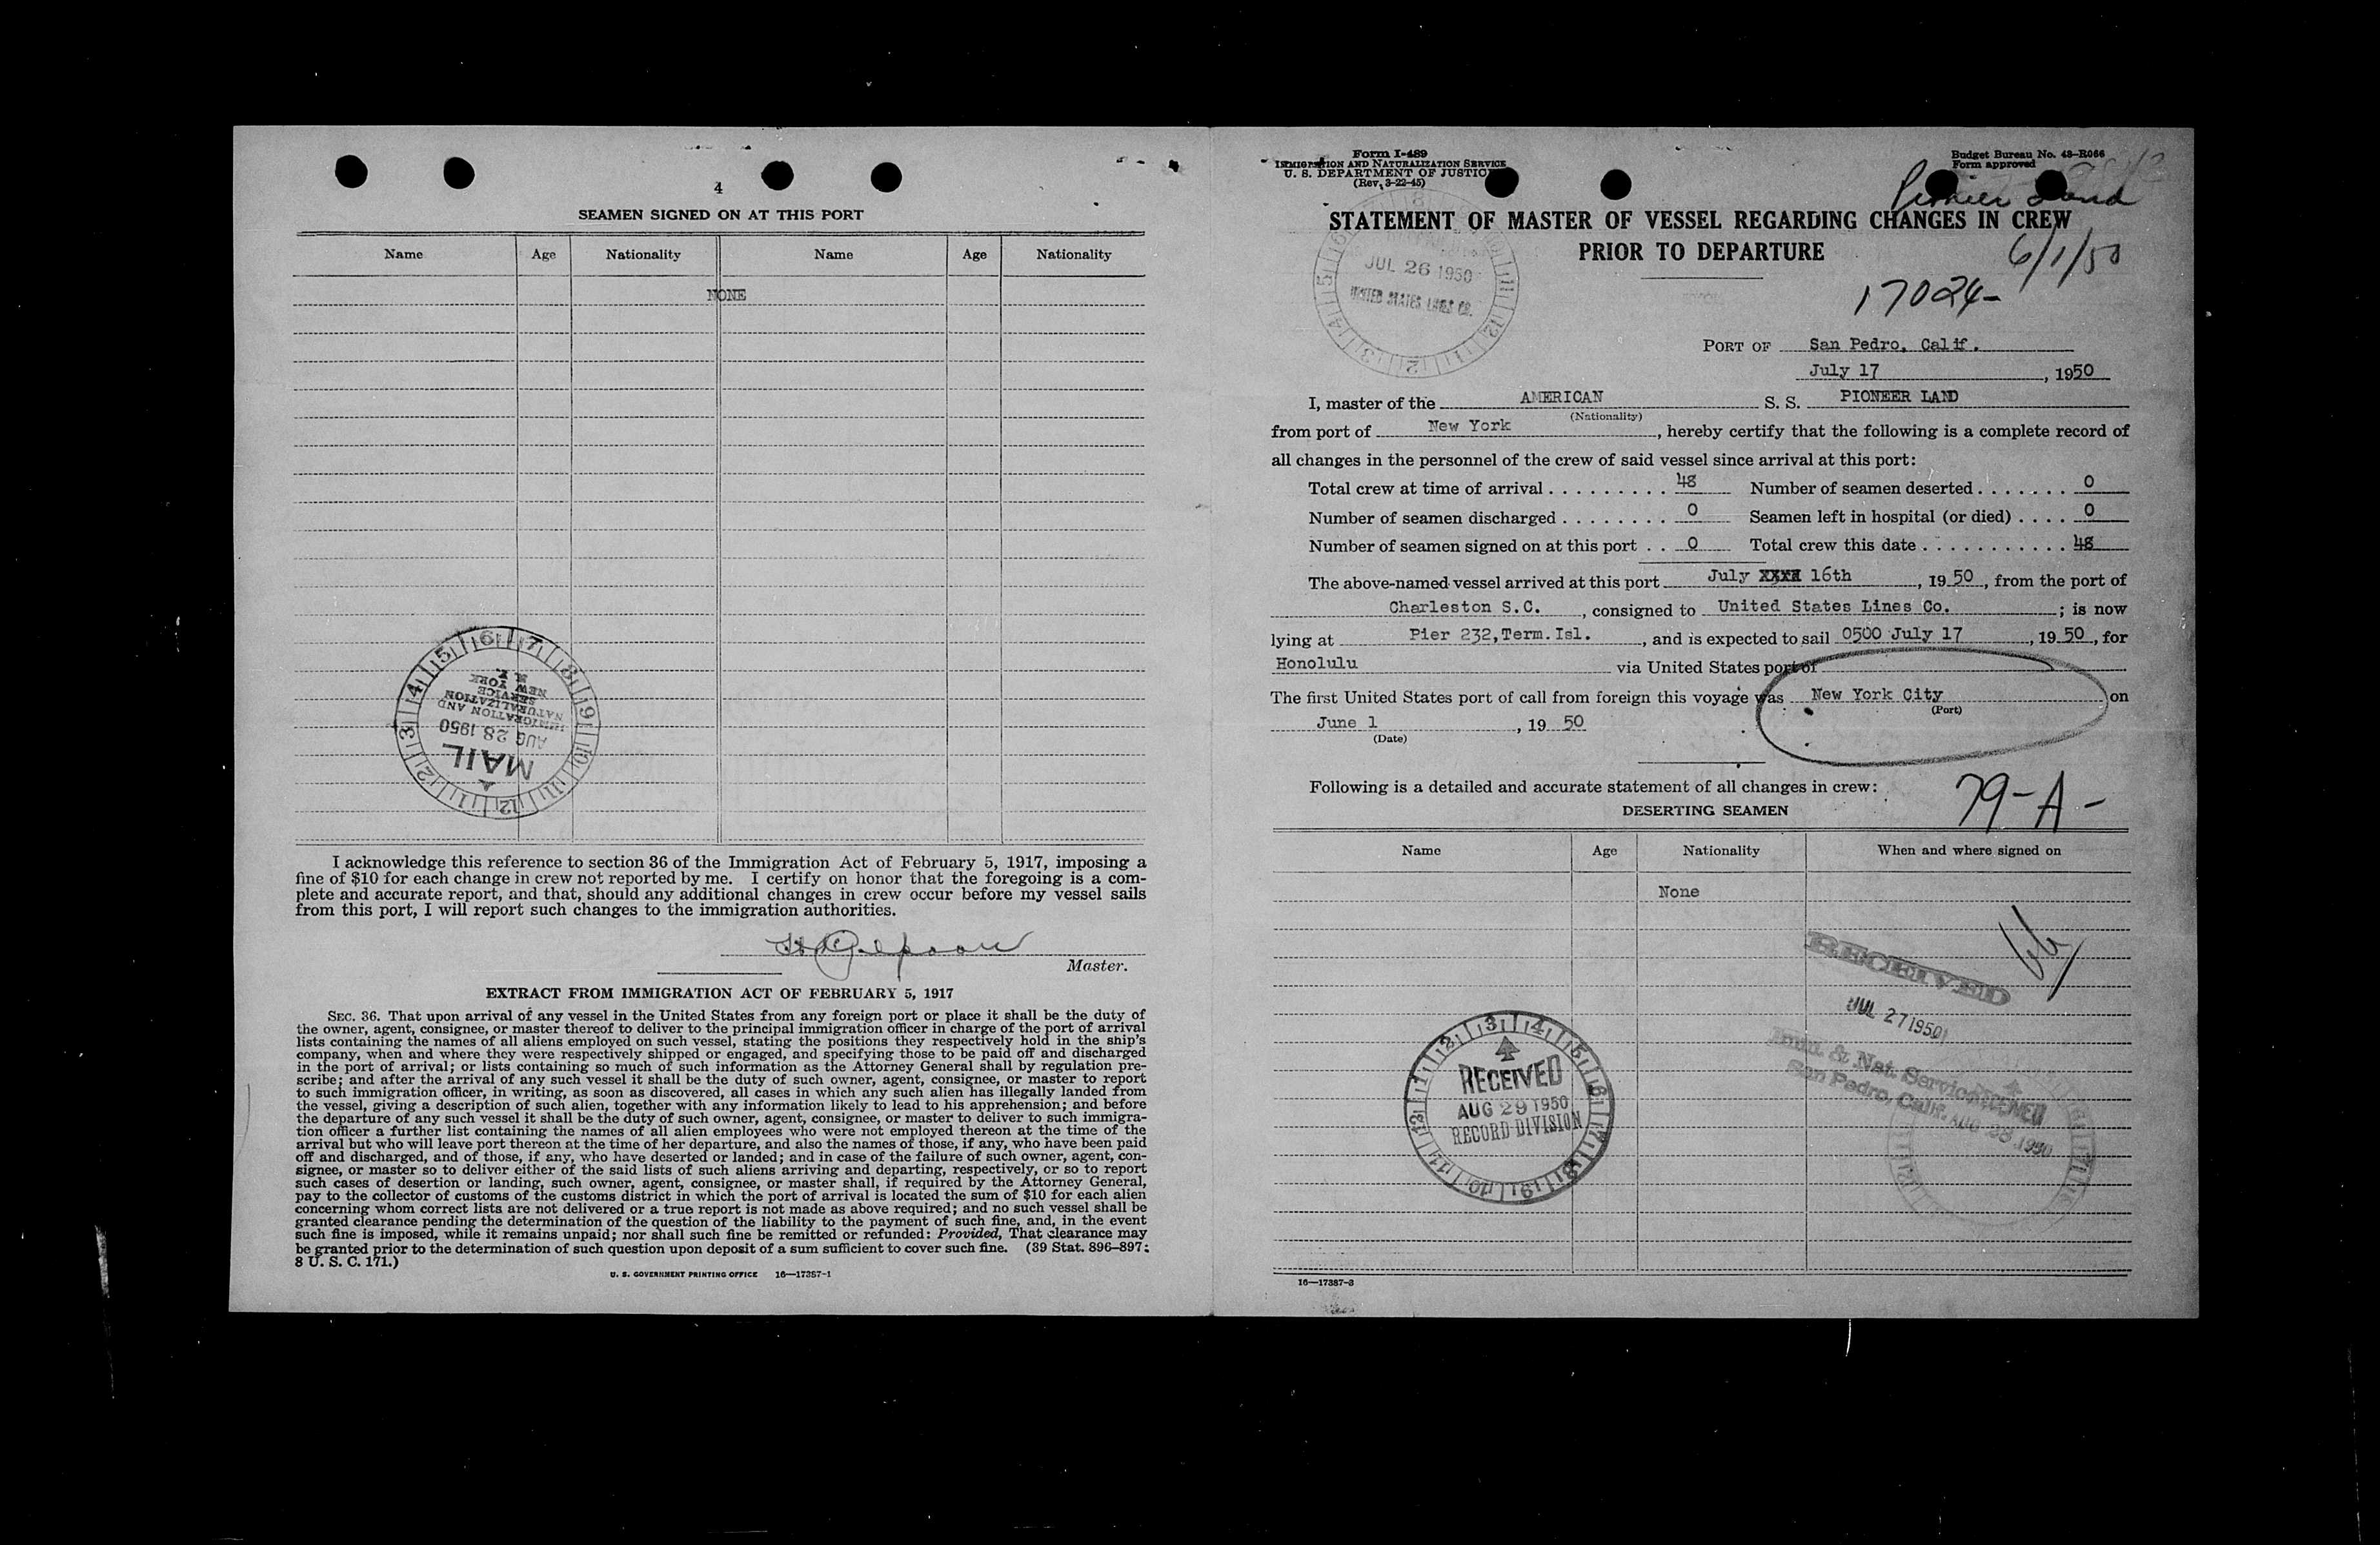 4
SEAMEN SIGNED ON AT THIS PORT
Name Age Nationality Name Age Nationality
NONE
MAIL
AUG 28 1950
IMMIGRATION AND
NATURALIZATION
SERVICE
NEW YORK
N. Y.
I acknowledge this reference to section 36 of the Immigration Act of February 5, 1917, imposing a
fine of $10 for each change in crew not reported by me. I certify on honor that the foregoing is a com-
plete and accurate report, and that, should any additional changes in crew occur before my vessel sails
from this port, I will report such changes to the immigration authorities.
Master.
EXTRACT FROM IMMIGRATION ACT OF FEBRUARY 5, 1917
SEC. 36. That upon arrival of any vessel in the United States from any foreign port or place it shall be the duty of
the owner, agent, consignee, or master thereof to deliver to the principal immigration officer in charge of the port of arrival
lists containing the names of all aliens employed on such vessel, stating the positions they respectively hold in the ship's
company, when and where they were respectively shipped or engaged, and specifying those to be paid off and discharged
in the port of arrival; or lists containing so much of such information as the Attorney General shall by regulation pre-
scribe; and after the arrival of any such vessel it shall be the duty of such owner, agent, consignee, or master to report
to such immigration officer, in writing, as soon as discovered, all cases in which any such alien has illegally landed from
the vessel, giving a description of such alien, together with any information likely to lead to his apprehension; and before
the departure of any such vessel it shall be the duty of such owner, agent, consignee, or master to deliver to such immigra-
tion officer a further list containing the names of all alien employees who were not employed thereon at the time of the
arrival but who will leave port thereon at the time of her departure, and also the names of those, if any, who have been paid
off and discharged, and of those, if any, who have deserted or landed; and in case of the failure of such owner, agent, con-
signee, or master so to deliver either of the said lists of such aliens arriving and departing, respectively, or so to report
such cases of desertion or landing, such owner, agent, consignee, or master shall, if required by the Attorney General,
pay to the collector of customs of the customs district in which the port of arrival is located the sum of $10 for each alien
concerning whom correct lists are not delivered or a true report is not made as above required; and no such vessel shall be
granted clearance pending the determination of the question of the liability to the payment of such fine, and, in the event
such fine is imposed, while it remains unpaid; nor shall such fine be remitted or refunded: Provided, That clearance may
be granted prior to the determination of such question upon deposit of a sum sufficient to cover such fine. (39 Stat. 896–897;
8 U. S. C. 171.)
U. S. GOVERNMENT PRINTING OFFICE 16—17387-1
Form I-489
IMMIGRATION AND NATURALIZATION SERVICE
U. S. DEPARTMENT OF JUSTICE
(Rev. 3-22-45)
Budget Bureau No. 43–R066
Form approved
Pioneer Land
STATEMENT OF MASTER OF VESSEL REGARDING CHANGES IN CREW
PRIOR TO DEPARTURE
6/1/50
17024-
JUL 26 1950
UNITED STATES LINES CO.
PORT OF San Pedro, Calif.
July 17, 1950
I, master of the AMERICAN S. S. PIONEER LAND
(Nationality)
from port of New York, hereby certify that the following is a complete record of
all changes in the personnel of the crew of said vessel since arrival at this port:
Total crew at time of arrival . . . . . . . . . 48 Number of seamen deserted . . . . . . . 0
Number of seamen discharged . . . . . . . . 0 Seamen left in hospital (or died) . . . . 0
Number of seamen signed on at this port . . 0 Total crew this date . . . . . . . . . . . 48
The above-named vessel arrived at this port July xxxx 16th, 19 50, from the port of
Charleston S.C., consigned to United States Lines Co.; is now
lying at Pier 232, Term. Isl., and is expected to sail 0500 July 17, 19 50, for
Honolulu via United States port of
The first United States port of call from foreign this voyage was New York City on
(Port)
June 1, 19 50
(Date)
Following is a detailed and accurate statement of all changes in crew:
79-A-
DESERTING SEAMEN
Name Age Nationality When and where signed on
None
RECEIVED
JUL 27 1950
Imm. & Nat. Service
San Pedro, Calif.
RECEIVED
AUG 28 1950
RECEIVED
AUG 29 1950
RECORD DIVISION
16—17387-3